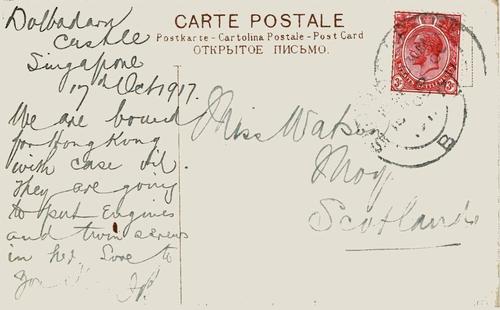 CARTE POSTALE
Postkarte - Cartolina Postale - Post Card
ОТКРЫТОЕ ПИСЬМО.
Dolbadarn
Castle
Singapore
17th Oct 1917.
We are bound
for Hong Kong
with case oil.
They are going
to put Engines
and twin screws
in her. Love to
you
Miss Watson
Moy
Scotland
B